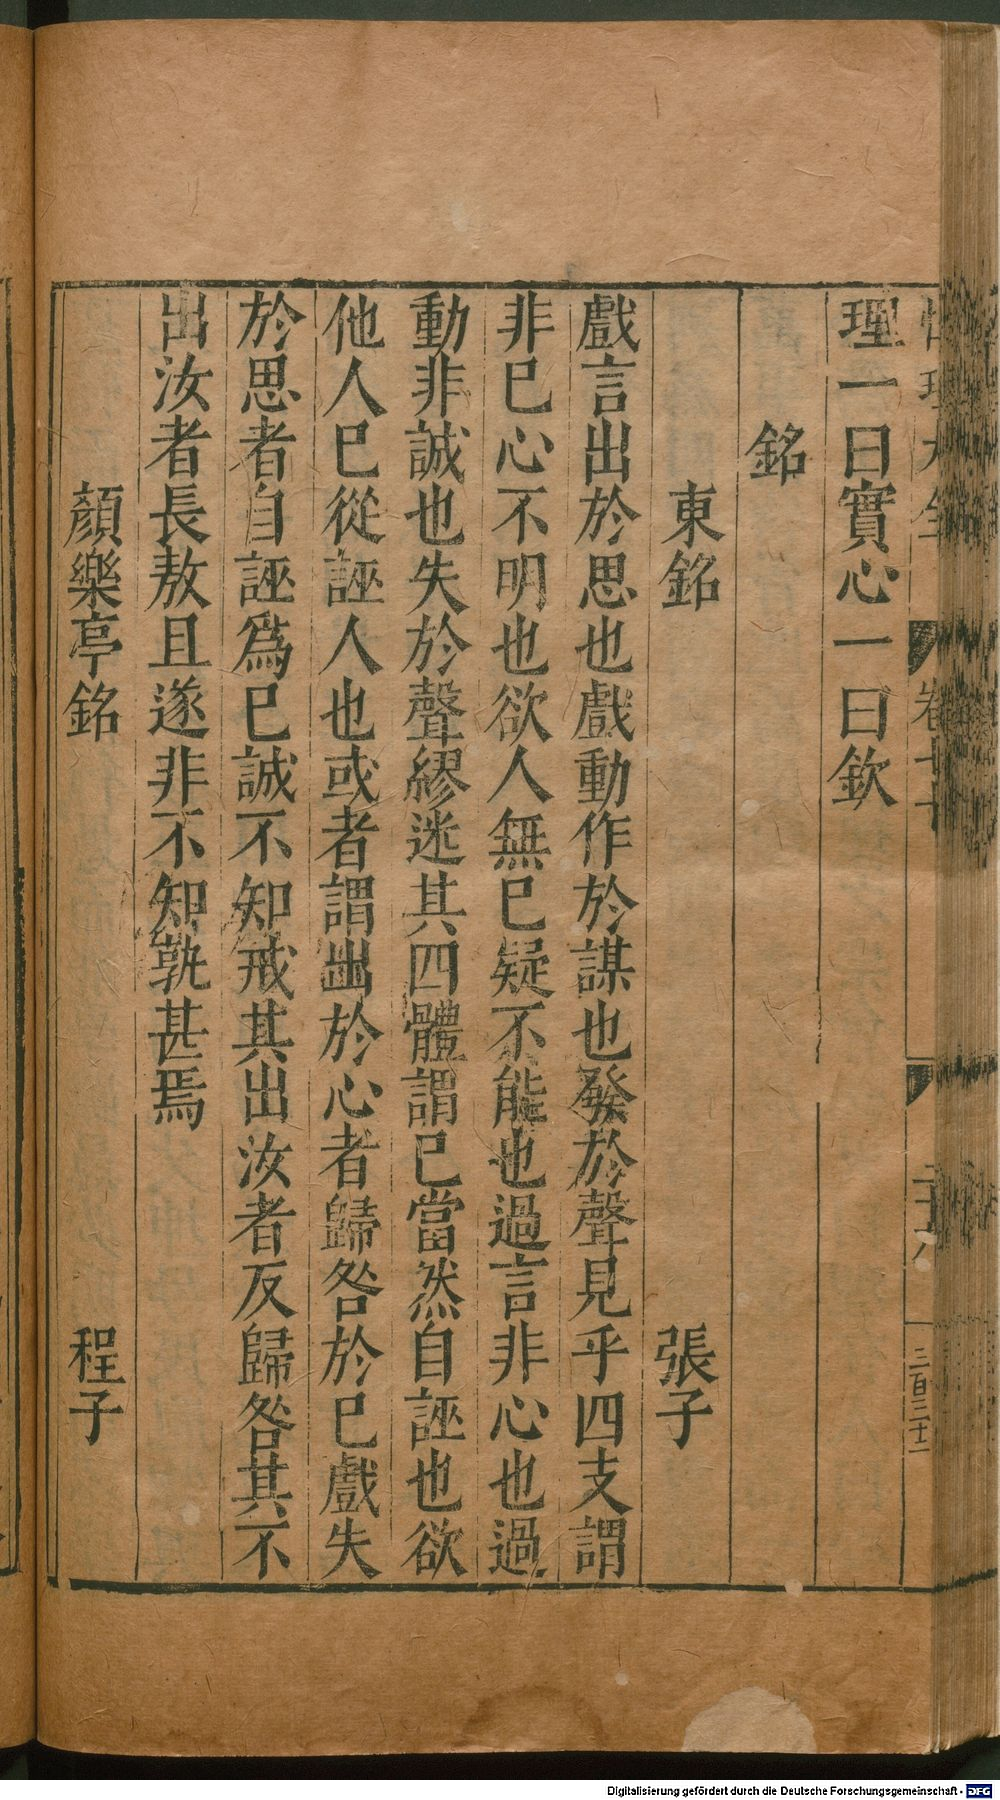 理一曰實心一曰欽
銘
東銘 張子
戲言出於思也戲動作於謀也發於聲見乎四支謂
非已心不明也欲人無已疑不能也過言非心也過
動非誠也失於聲繆迷其四體謂已當然自誣也欲
他人已從誣人也或者謂出於心者歸咎於已戲失
於思者自誣爲已誠不知戒其出汝者反歸咎其不
出汝者長敖且遂非不知孰甚焉
顏樂亭銘 程子
卷七十
三百三十二
Digitalisierung gefördert durch die Deutsche Forschungsgemeinschaft - DFG